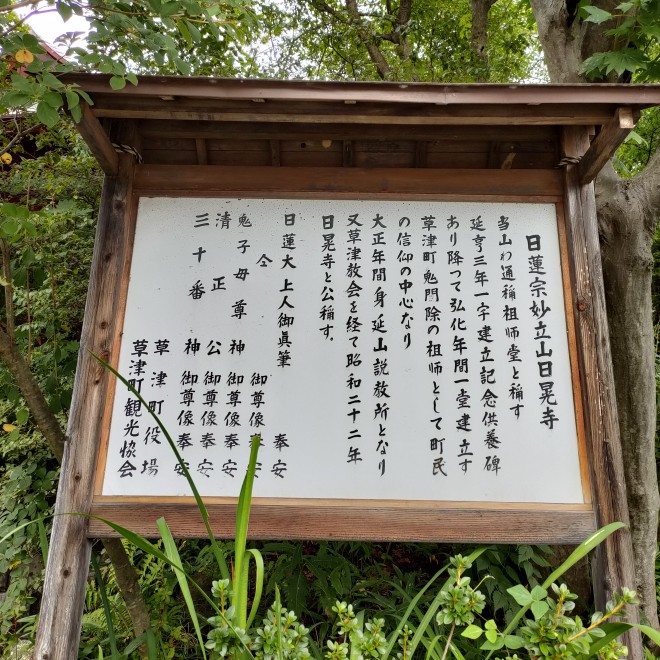 日蓮宗妙立山日晃寺
当山わ通稱祖师堂と稱す
延亨三年一字建立記念供養碑
あり降つて弘化年間一堂建立す
草津町鬼門除の祖师として町民
の信仰の中心なり
大正年間身延山説教所となり
又草津教会を経て昭和二十二年
日晃寺と公稱す.
日蓮大上人御眞筆 奉安
仝 御尊像 奉安
鬼子母尊神 御尊像 奉安
清正公 御尊像 奉安
三十番神 御尊像 奉安
草津町役場
草津町観光協会